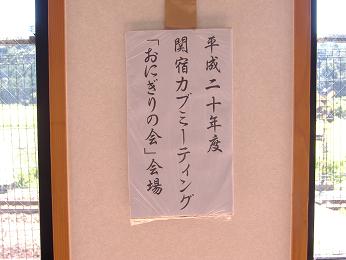 平成二十年度
関宿カブミーティング
「おにぎりの会」会場